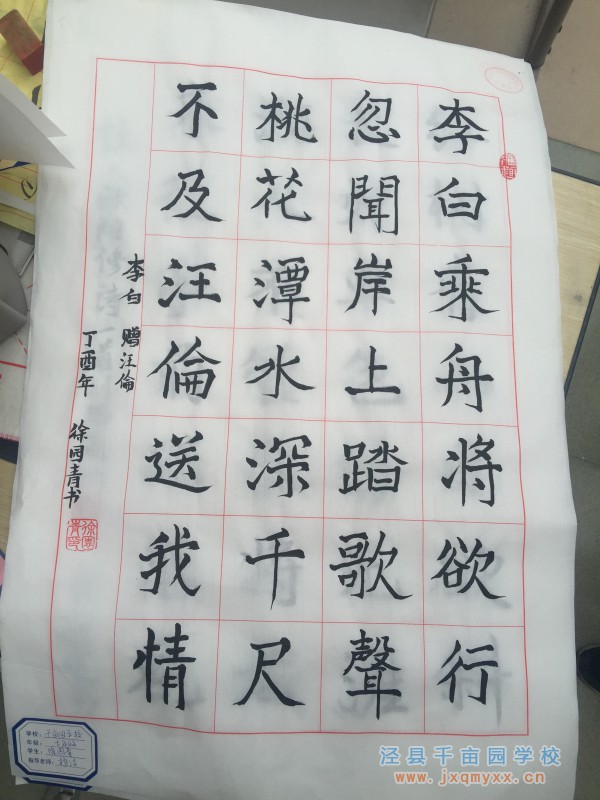 李白乘舟将欲行
忽聞岸上踏歌聲
桃花潭水深千尺
不及汪倫送我情
李白 赠汪倫
丁酉年 徐园青书
学校:
年级:
学生:
指导老师:
泾县千亩园学校
www.jxqmyxx.cn